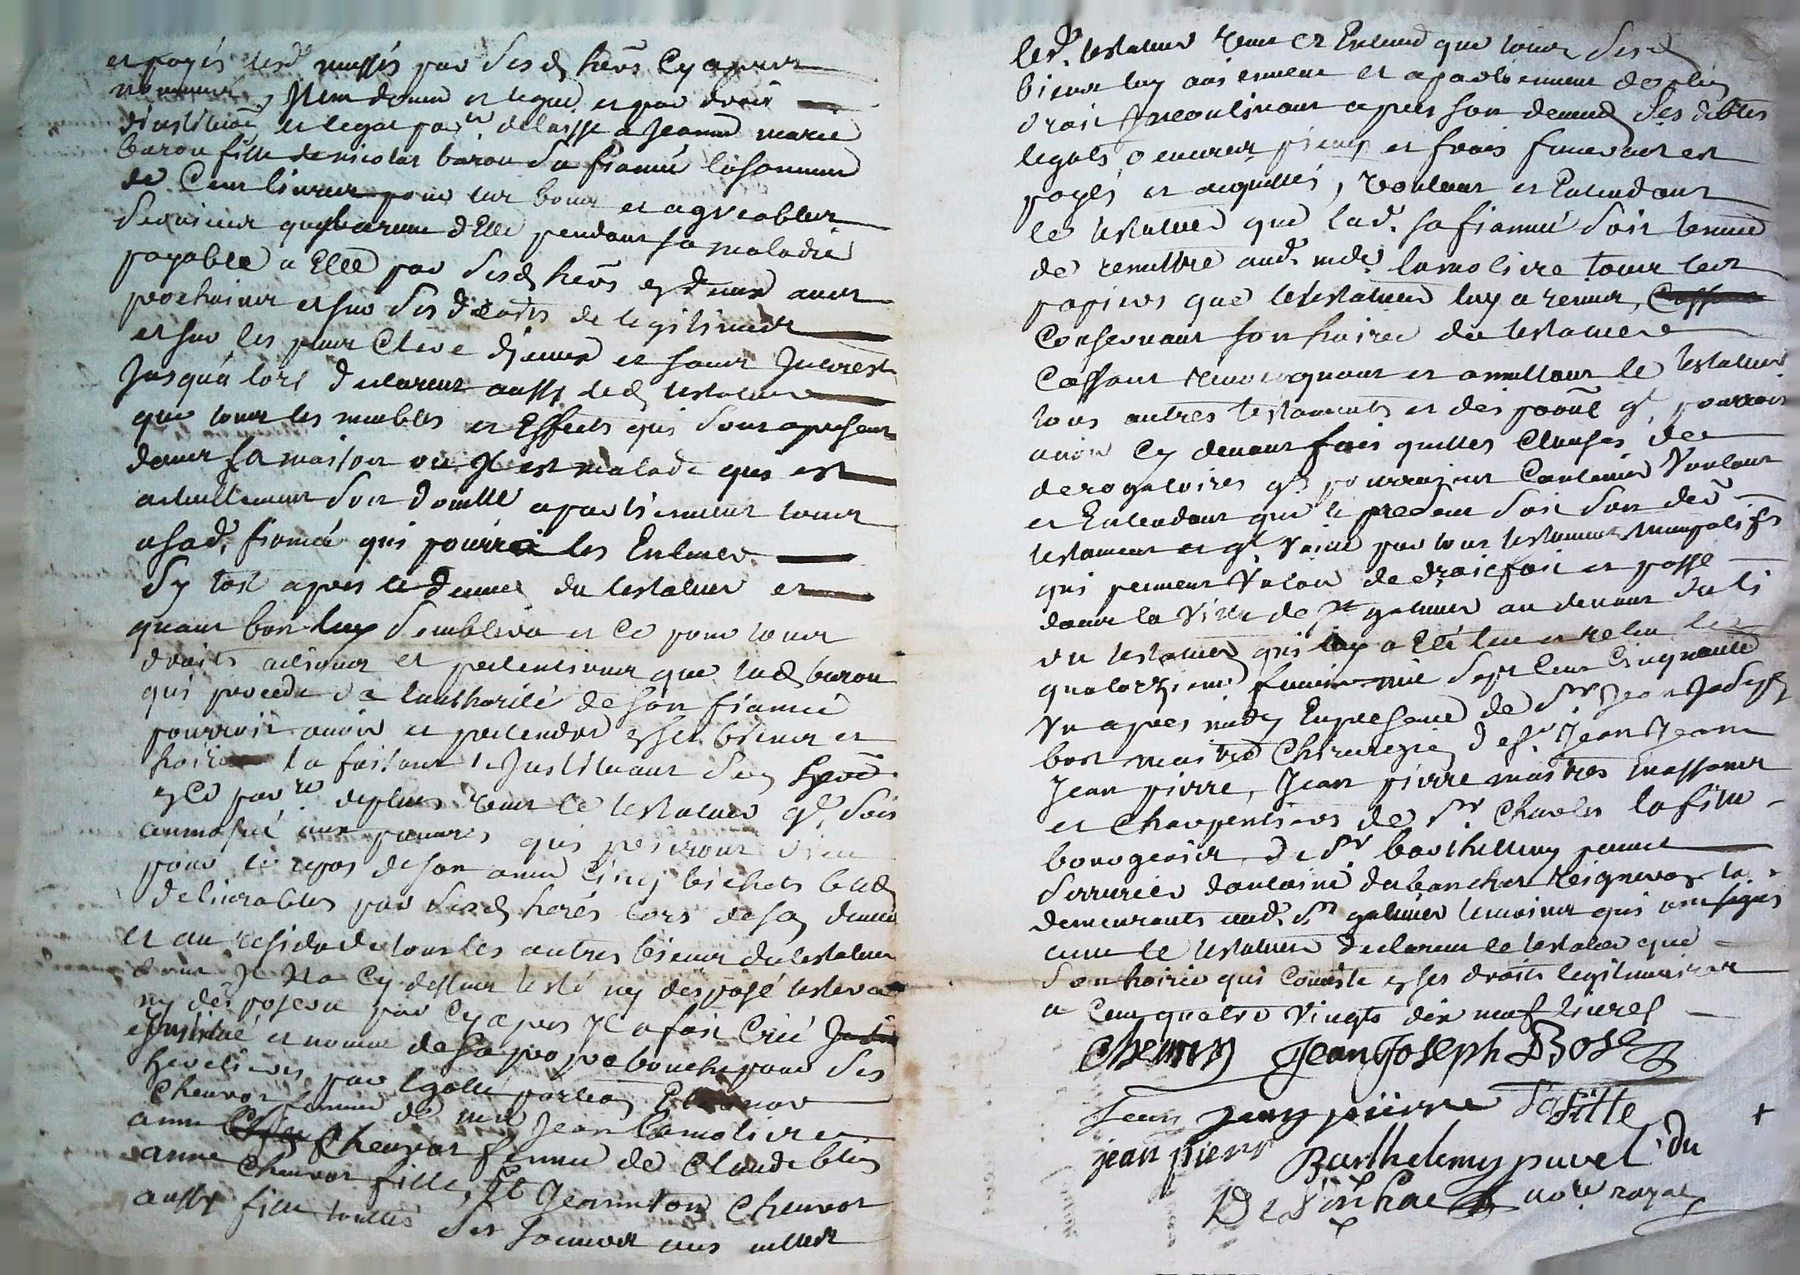 et payés lesd. massés par sesd. hers cy apres
nommés, Item donne et legue et par droit
d'institu͠on et legat partr. delaisse a Jeanne marie
baron fille de nicolas baron sa fiancée la somme
de Cent livres pour les bons et agreables
services quil a receu d'Elle pendant sa maladie
payable a Elle par sesd. hers en deux ans
prochains et sur ses droits de legitime
et sur les plus Clers d'iceux et sans Interest
Jusqu'a lors declarant aussy led. testateur
que tous les meubles et Effects qui sont apresent
dans sa maison ou Il est malade qui est
actuellement son domille apartiennent tous
asad. fiancée qui pourra les Enlever
sy tost apres le deces du testateur et
quant bon luy semblera et ce pour tous
droits actions et pretentions que lad. baron
qui procede de l'authorité de son fiancé
pourroit avoir et pretendre en ses biens et
hoirie la faisant et Instituant son
en ce parre. de plus veut le testateur q. soit
aumosné aux pauvres qui prieront dieu
pour le repos de son ame Cinq bichets bled
delivrables par sesd. herés lors de son deces
et au residu de tous les autres biens du testateur
dont Il n'a cy dessus testé ny disposé testera
ny disposera par cy apres Il a fait créé
Institué et nommé de sa propre bouche pour ses
heretiers par Egalle portion
Chenvor femme de me Jean Lamoliere
anne Chenvor femme de Claude
anne Chenvor fille, Et Jeanneton Chenvor
aussy fille toutes ses soeurs aux milles
led. testateur veut et Entend que tous sesd.
biens luy aviennent et apartiennent de plein
droit Incontinant apres son deces ses debtes
legats oeuvres pieux et frais funeraires
payés et acquittés, voulant et Entendant
le testateur que lad. sa fiancée soit tenue
de remettre aud. me lamoliere tous les
papiers que le testateur luy a remis,
Consernant son hoirie du testateur
Cassant revocquant et annullant le testateur
tous autres testaments et dispo͠on q. pourroit
avoir Cy devant fait quelles Clauses de
derogatoires q. pourroient Contenir Voulant
et Entendant que le present soit son der
testament et q. Vaille par tous testaments nuncupatifs
qui peuvent Valoir de droit fait et passé
dans la Ville de St galmier au devant du lit
du testateur qui luy a Eté leu et releu le
quatorzieme fevrier mil sept cent Cinquante
Un apres midy En presence de Sr Jean Joseph
bose maitre Chirurgien de sr. Jean Jeam
Jean pierre, Jean pierre maitres massons
et Charpentiers de Sr Charles lafitte
bourgeois de Sr barthellemy puvel
serrurier
demeurants aud. St galmier temoins qui ont signés
avec le testateur declarant le testateur que
son hoirie qui consiste en ses droits legitimaires
a Cent quatre Vingts dix neuf livres
Chenvor Jean Joseph Bose
Jean Jean pierre Lafitte
jean pierre Barthelemy puvel du
De Vinhac nore royal